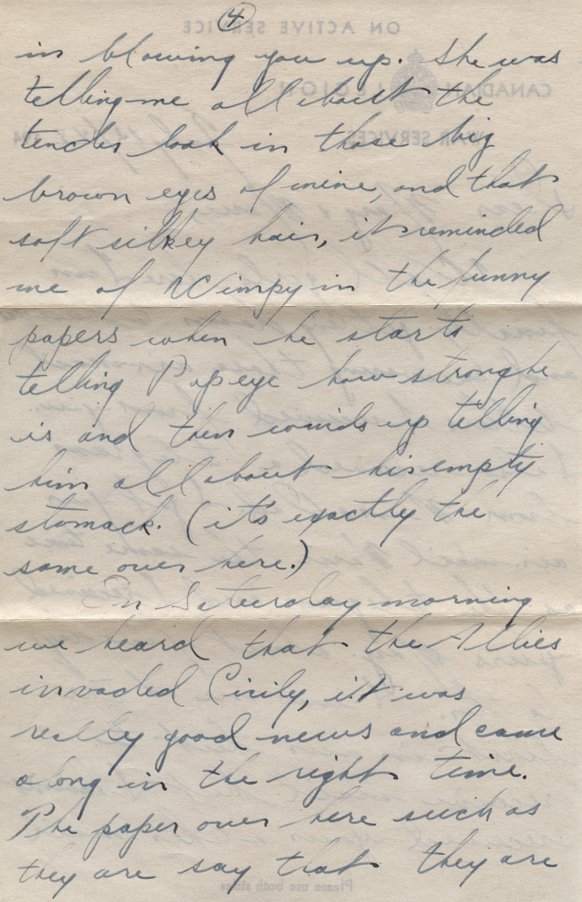 4
in blowing you up. She was
telling me all about the
tender look in those big
brown eyes of mine, and that
soft silkey hair, it reminded
me of Wimpy in the funny
papers when he starts
telling Popeye how strong he
is and then winds up telling
him all about his empty
stomack. (it's exactly the
same over here.)
On Saturday morning
we heard that the Allies
invaded Cicily, it was
really good news and came
along in the right time.
The paper over here such as
they are say that they are